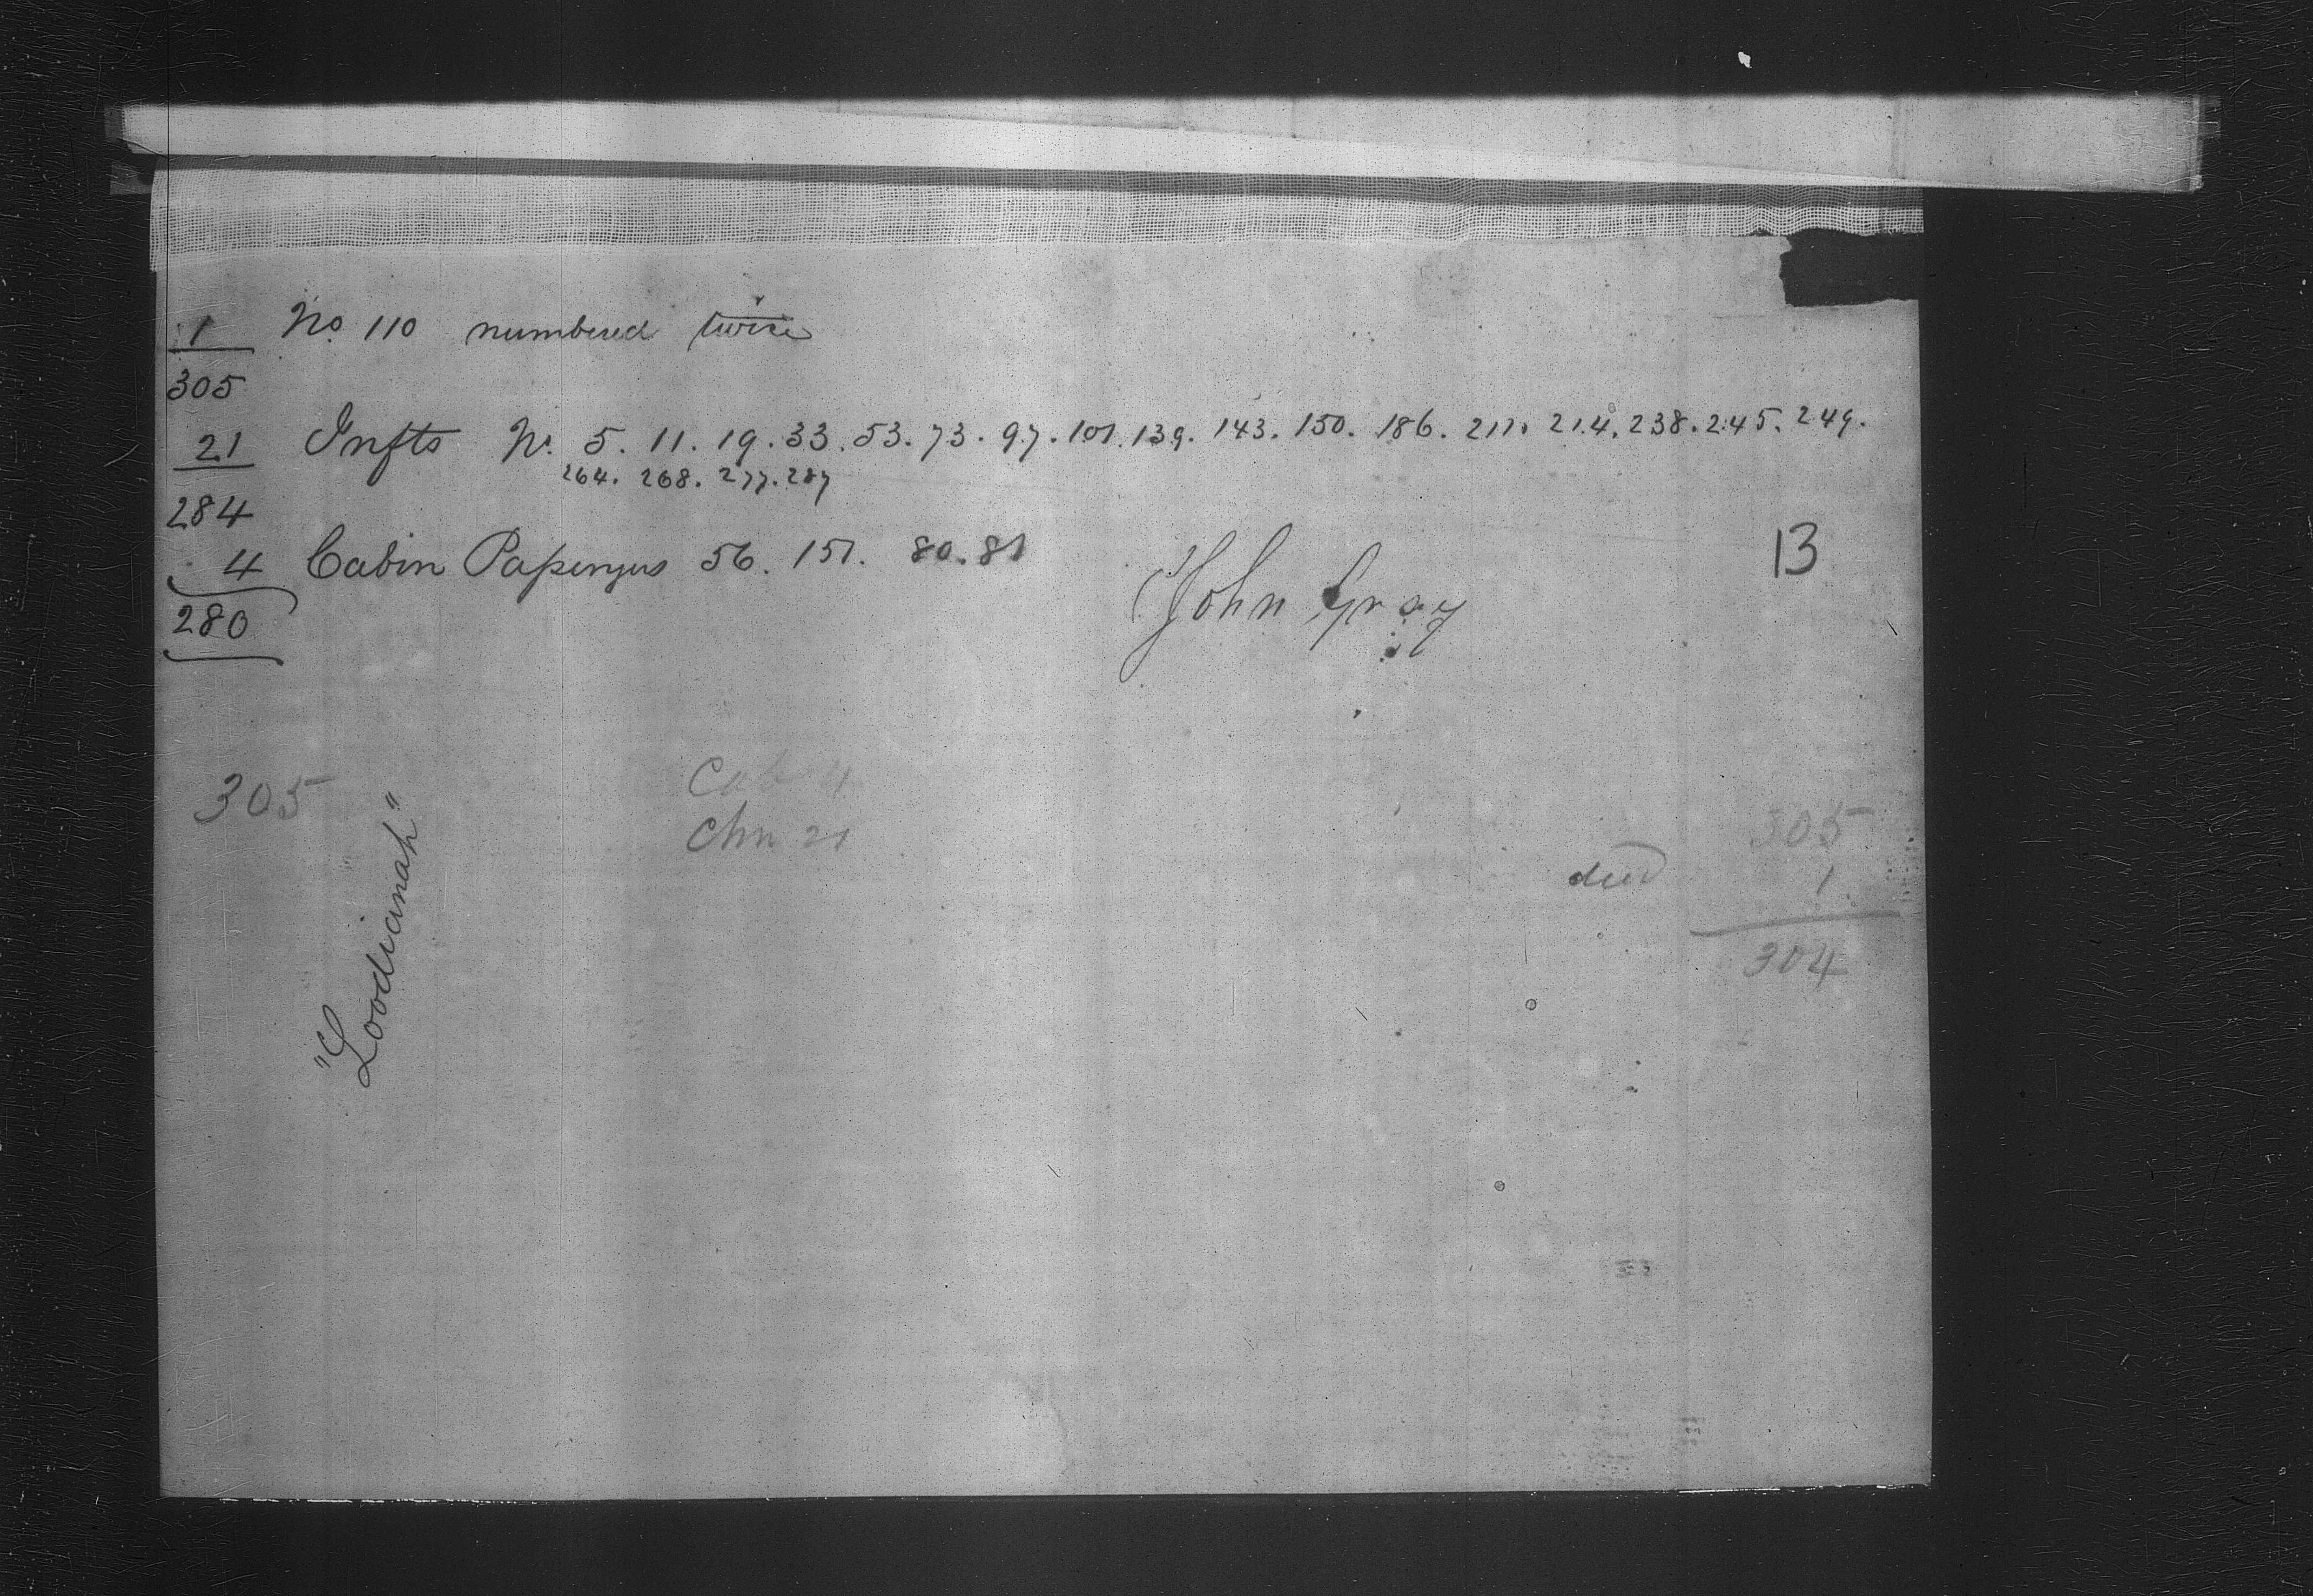 1 No 110 numbered twice
305
21 Infts No. 5. 11. 19. 33. 53. 73. 97. 101. 139. 143. 150. 186. 211. 214. 238. 245. 249.
264. 268. 277. 287
284
4 Cabin Passengers 56. 151. 80. 81
280
John Gray
13
305
Cab 4
Chn 21
"Loodianah"
305
died 1
304